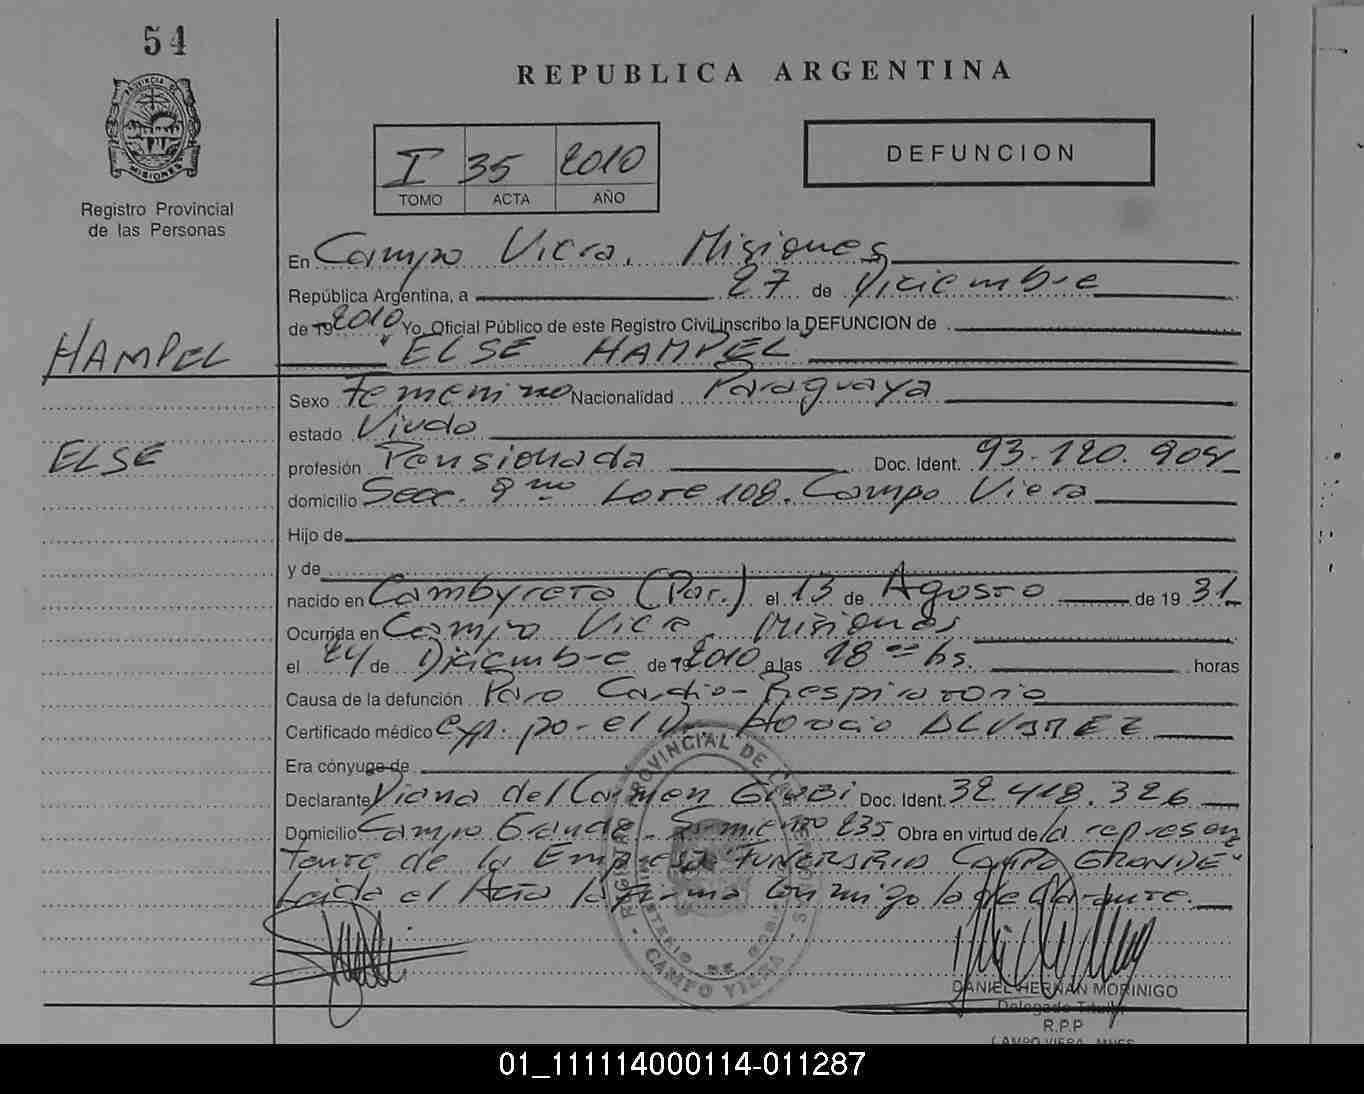 54
REPUBLICA ARGENTINA
PROVINCIA DE
MISIONES
I 35 2010
TOMO ACTA AÑO
DEFUNCION
Registro Provincial
de las Personas
En Campo Viera, Misiones
República Argentina, a 27 de Diciembre
de 19 2010 Yo, Oficial Público de este Registro Civil inscribo la DEFUNCION de
HAMPEL
"ELSE HAMPEL"
Sexo Femenino Nacionalidad Paraguaya
estado Viuda
ELSE
profesión Pensionada Doc. Ident. 93.120.904
domicilio Secc. 9na Lote 108. Campo Viera
Hijo de
y de
nacido en Cambyreta (Par.) el 13 de Agosto de 19 31
Ocurrida en Campo Viera, Misiones
el 24 de Diciembre de 19 2010 a las 18 hs. horas
Causa de la defunción Paro Cardio-Respiratorio
Certificado médico exp. por el Dr. Horacio ALVAREZ
Era cónyuge de
Declarante Diana del Carmen Doc. Ident. 32.418.326
Domicilio Campo Grande - Sarmiento 235 Obra en virtud de la represen
tante de la Empresa FUNERARIA CAMPO GRANDE"
Leida el Acta la firma conmigo la declarante.
REGISTRO PROVINCIAL DE LAS PERSONAS
MINISTERIO DE GOBI
CAMPO VIERA
DANIEL HERNAN MORINIGO
Delegado Titular
R.P.P
CAMPO VIERA MNES
01_111114000114-011287